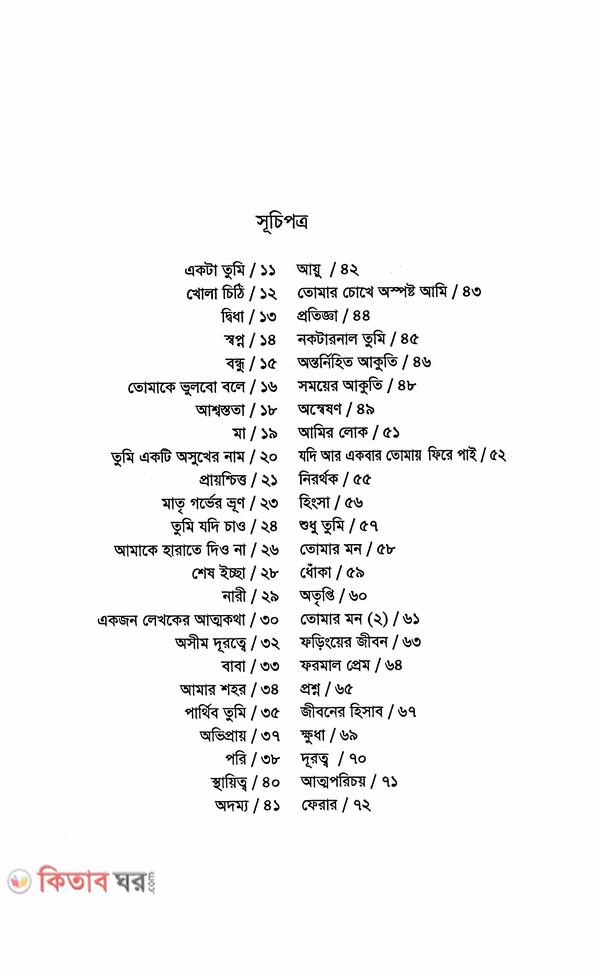 সূচিপত্র
একটা তুমি / ১১
খোলা চিঠি / ১২
দ্বিধা / ১৩
স্বপ্ন / ১৪
বন্ধু / ১৫
তোমাকে ভুলবো বলে / ১৬
আশ্বস্ততা / ১৮
মা / ১৯
তুমি একটি অসুখের নাম / ২০
প্রায়শ্চিত্ত / ২১
মাতৃ গর্ভের ভ্রূণ / ২৩
তুমি যদি চাও / ২৪
আমাকে হারাতে দিও না / ২৬
শেষ ইচ্ছা / ২৮
নারী / ২৯
একজন লেখকের আত্মকথা / ৩০
অসীম দূরত্বে / ৩২
বাবা / ৩৩
আমার শহর / ৩৪
পার্থিব তুমি / ৩৫
অভিপ্রায় / ৩৭
পরি / ৩৮
স্থায়িত্ব / ৪০
অদম্য / ৪১
আয়ু / ৪২
তোমার চোখে অস্পষ্ট আমি / ৪৩
প্রতিজ্ঞা / ৪৪
নকটারনাল তুমি / ৪৫
অন্তর্নিহিত আকুতি / ৪৬
সময়ের আকুতি / ৪৮
অন্বেষণ / ৪৯
আমির লোক / ৫১
যদি আর একবার তোমায় ফিরে পাই / ৫২
নিরর্থক / ৫৫
হিংসা / ৫৬
শুধু তুমি / ৫৭
তোমার মন / ৫৮
ধোঁকা / ৫৯
অতৃপ্তি / ৬০
তোমার মন (২) / ৬১
ফড়িংয়ের জীবন / ৬৩
ফরমাল প্রেম / ৬৪
প্রশ্ন / ৬৫
জীবনের হিসাব / ৬৭
ক্ষুধা / ৬৯
দূরত্ব / ৭০
আত্মপরিচয় / ৭১
ফেরার / ৭২
কিতাব ঘর.com